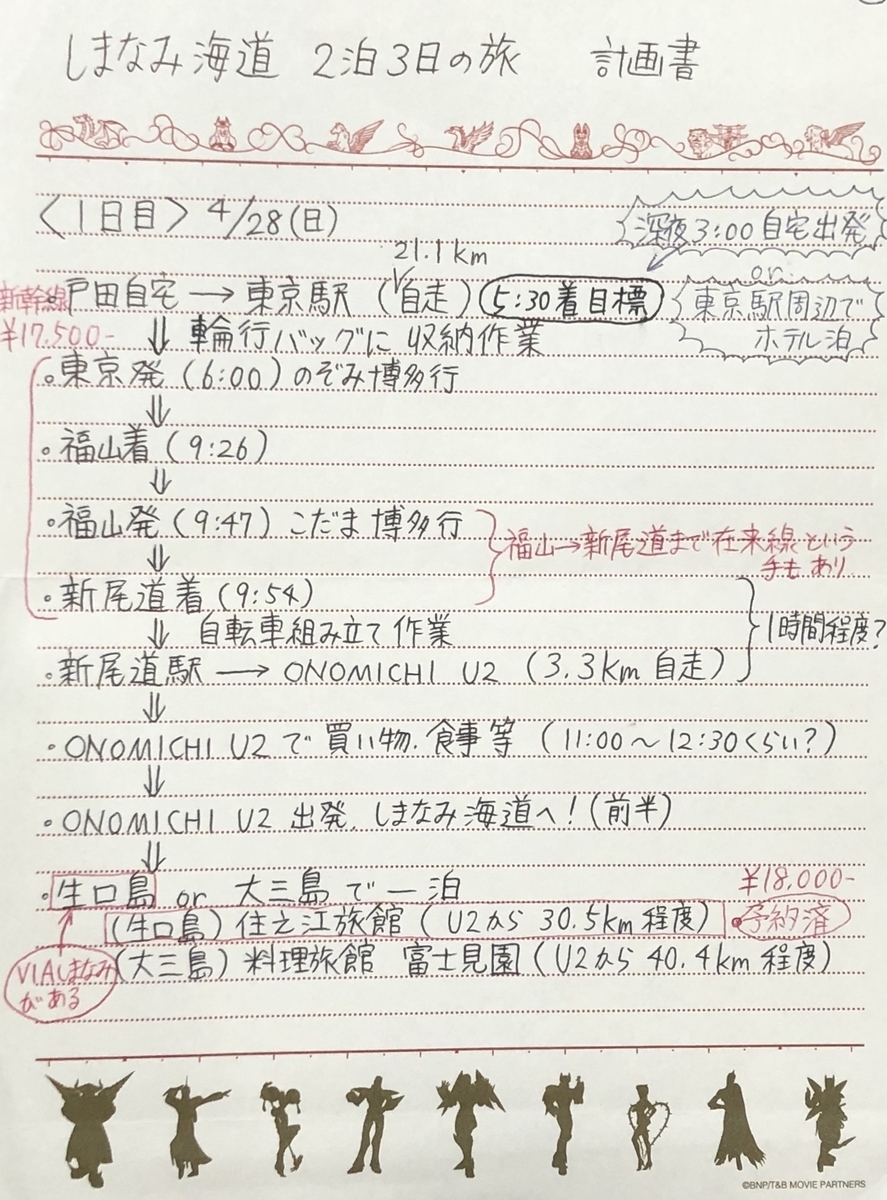 しまなみ海道 2泊3日の旅 計画書
〈1日目〉4/28(日)
深夜3:00自宅出発
or
東京駅周辺で
ホテル泊
21.1km
新幹線
¥17,500-
戸田自宅 → 東京駅 (自走) 5:30着目標
⇓ 輪行バッグに収納作業
・東京発 (6:00) のぞみ博多行
⇓
・福山着 (9:26)
⇓
・福山発 (9:47) こだま博多行
福山→新尾道まで在来線という
手もあり
⇓
・新尾道着 (9:54)
⇓ 自転車組み立て作業
1時間程度?
・新尾道駅 → ONOMICHI U2 (3.3km 自走)
⇓
・ONOMICHI U2で買い物、食事等 (11:00〜12:30くらい?)
⇓
・ONOMICHI U2 出発、しまなみ海道へ!(前半)
⇓
・生口島 or 大三島で一泊
¥18,000-
(生口島) 住之江旅館 (U2から 30.5km程度) ・予約済
(大三島) 料理旅館 富士見園 (U2から 40.4km程度)
VIAしまなみ
がある
©BNP/T&B MOVIE PARTNERS